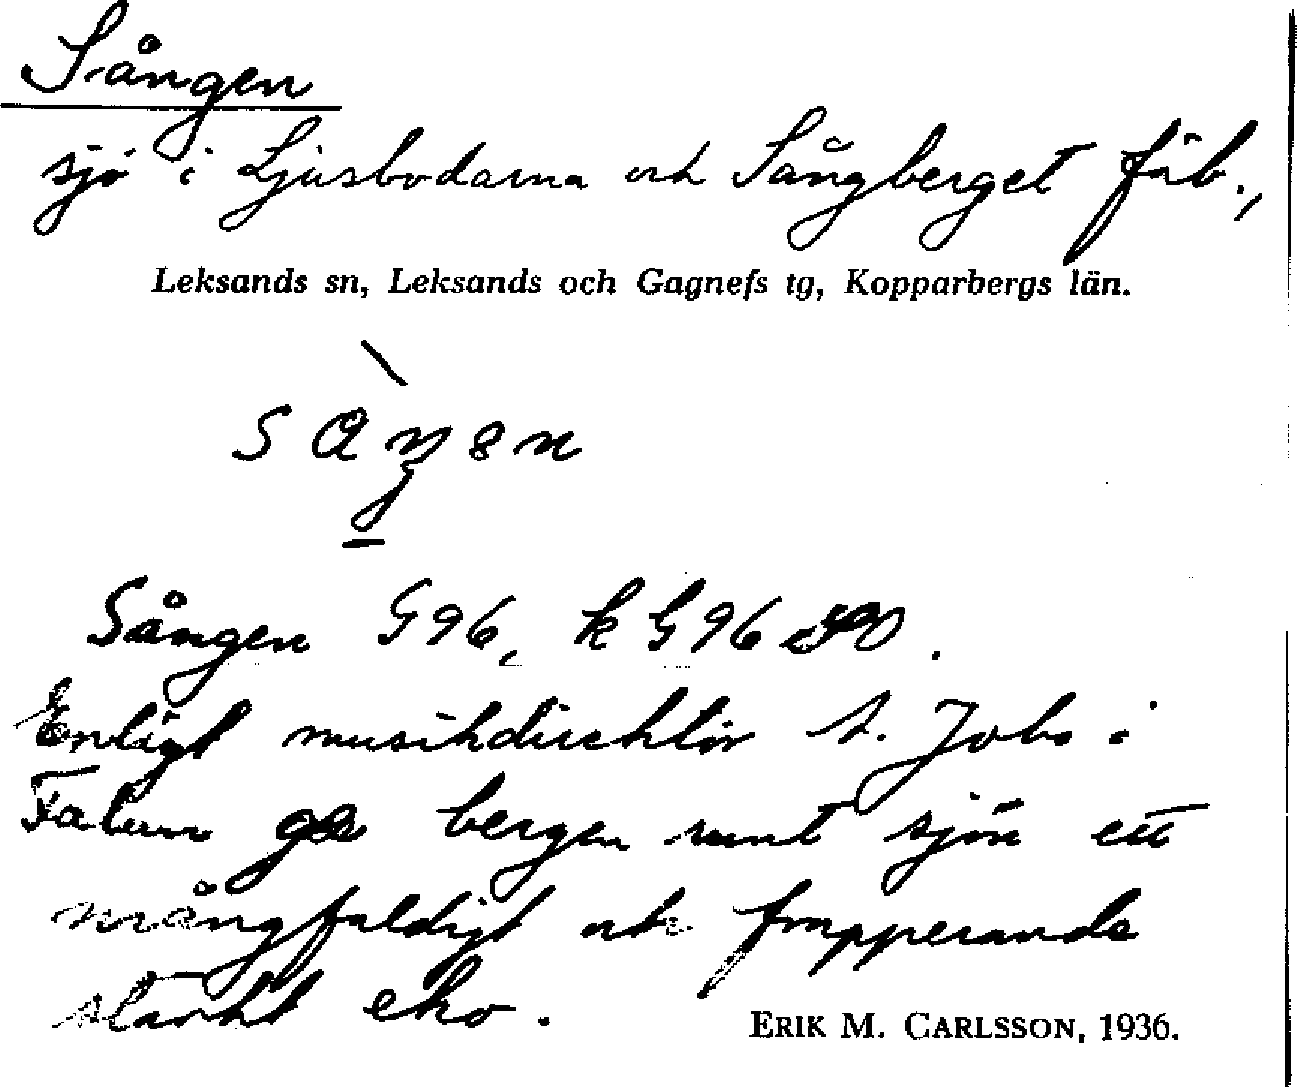 Sången
sjö i Ljusbodarna och Sångberget fäb.,
Leksands sn, Leksands och Gagnefs tg, Kopparbergs län.
Sången G96, k G96
Enligt musikdirektör A. Jobs i
Falun ger bergen runt sjön ett
mångfaldigt och frapperande
starkt eko.
ERIK M. CARLSSON, 1936.